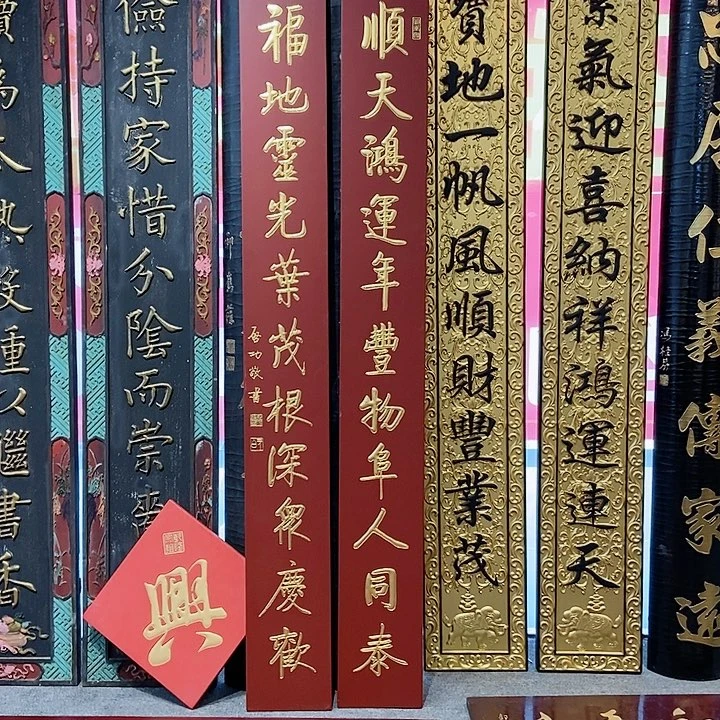 仁義傳家遠
馮桂芬
紫氣迎喜納祥鴻運連天
寶地一帆風順財豐業茂
順天鴻運年豐物阜人同泰
福地靈光葉茂根深眾慶歡
啟功敬書
儉持家惜分陰而崇
種以繼書香
興